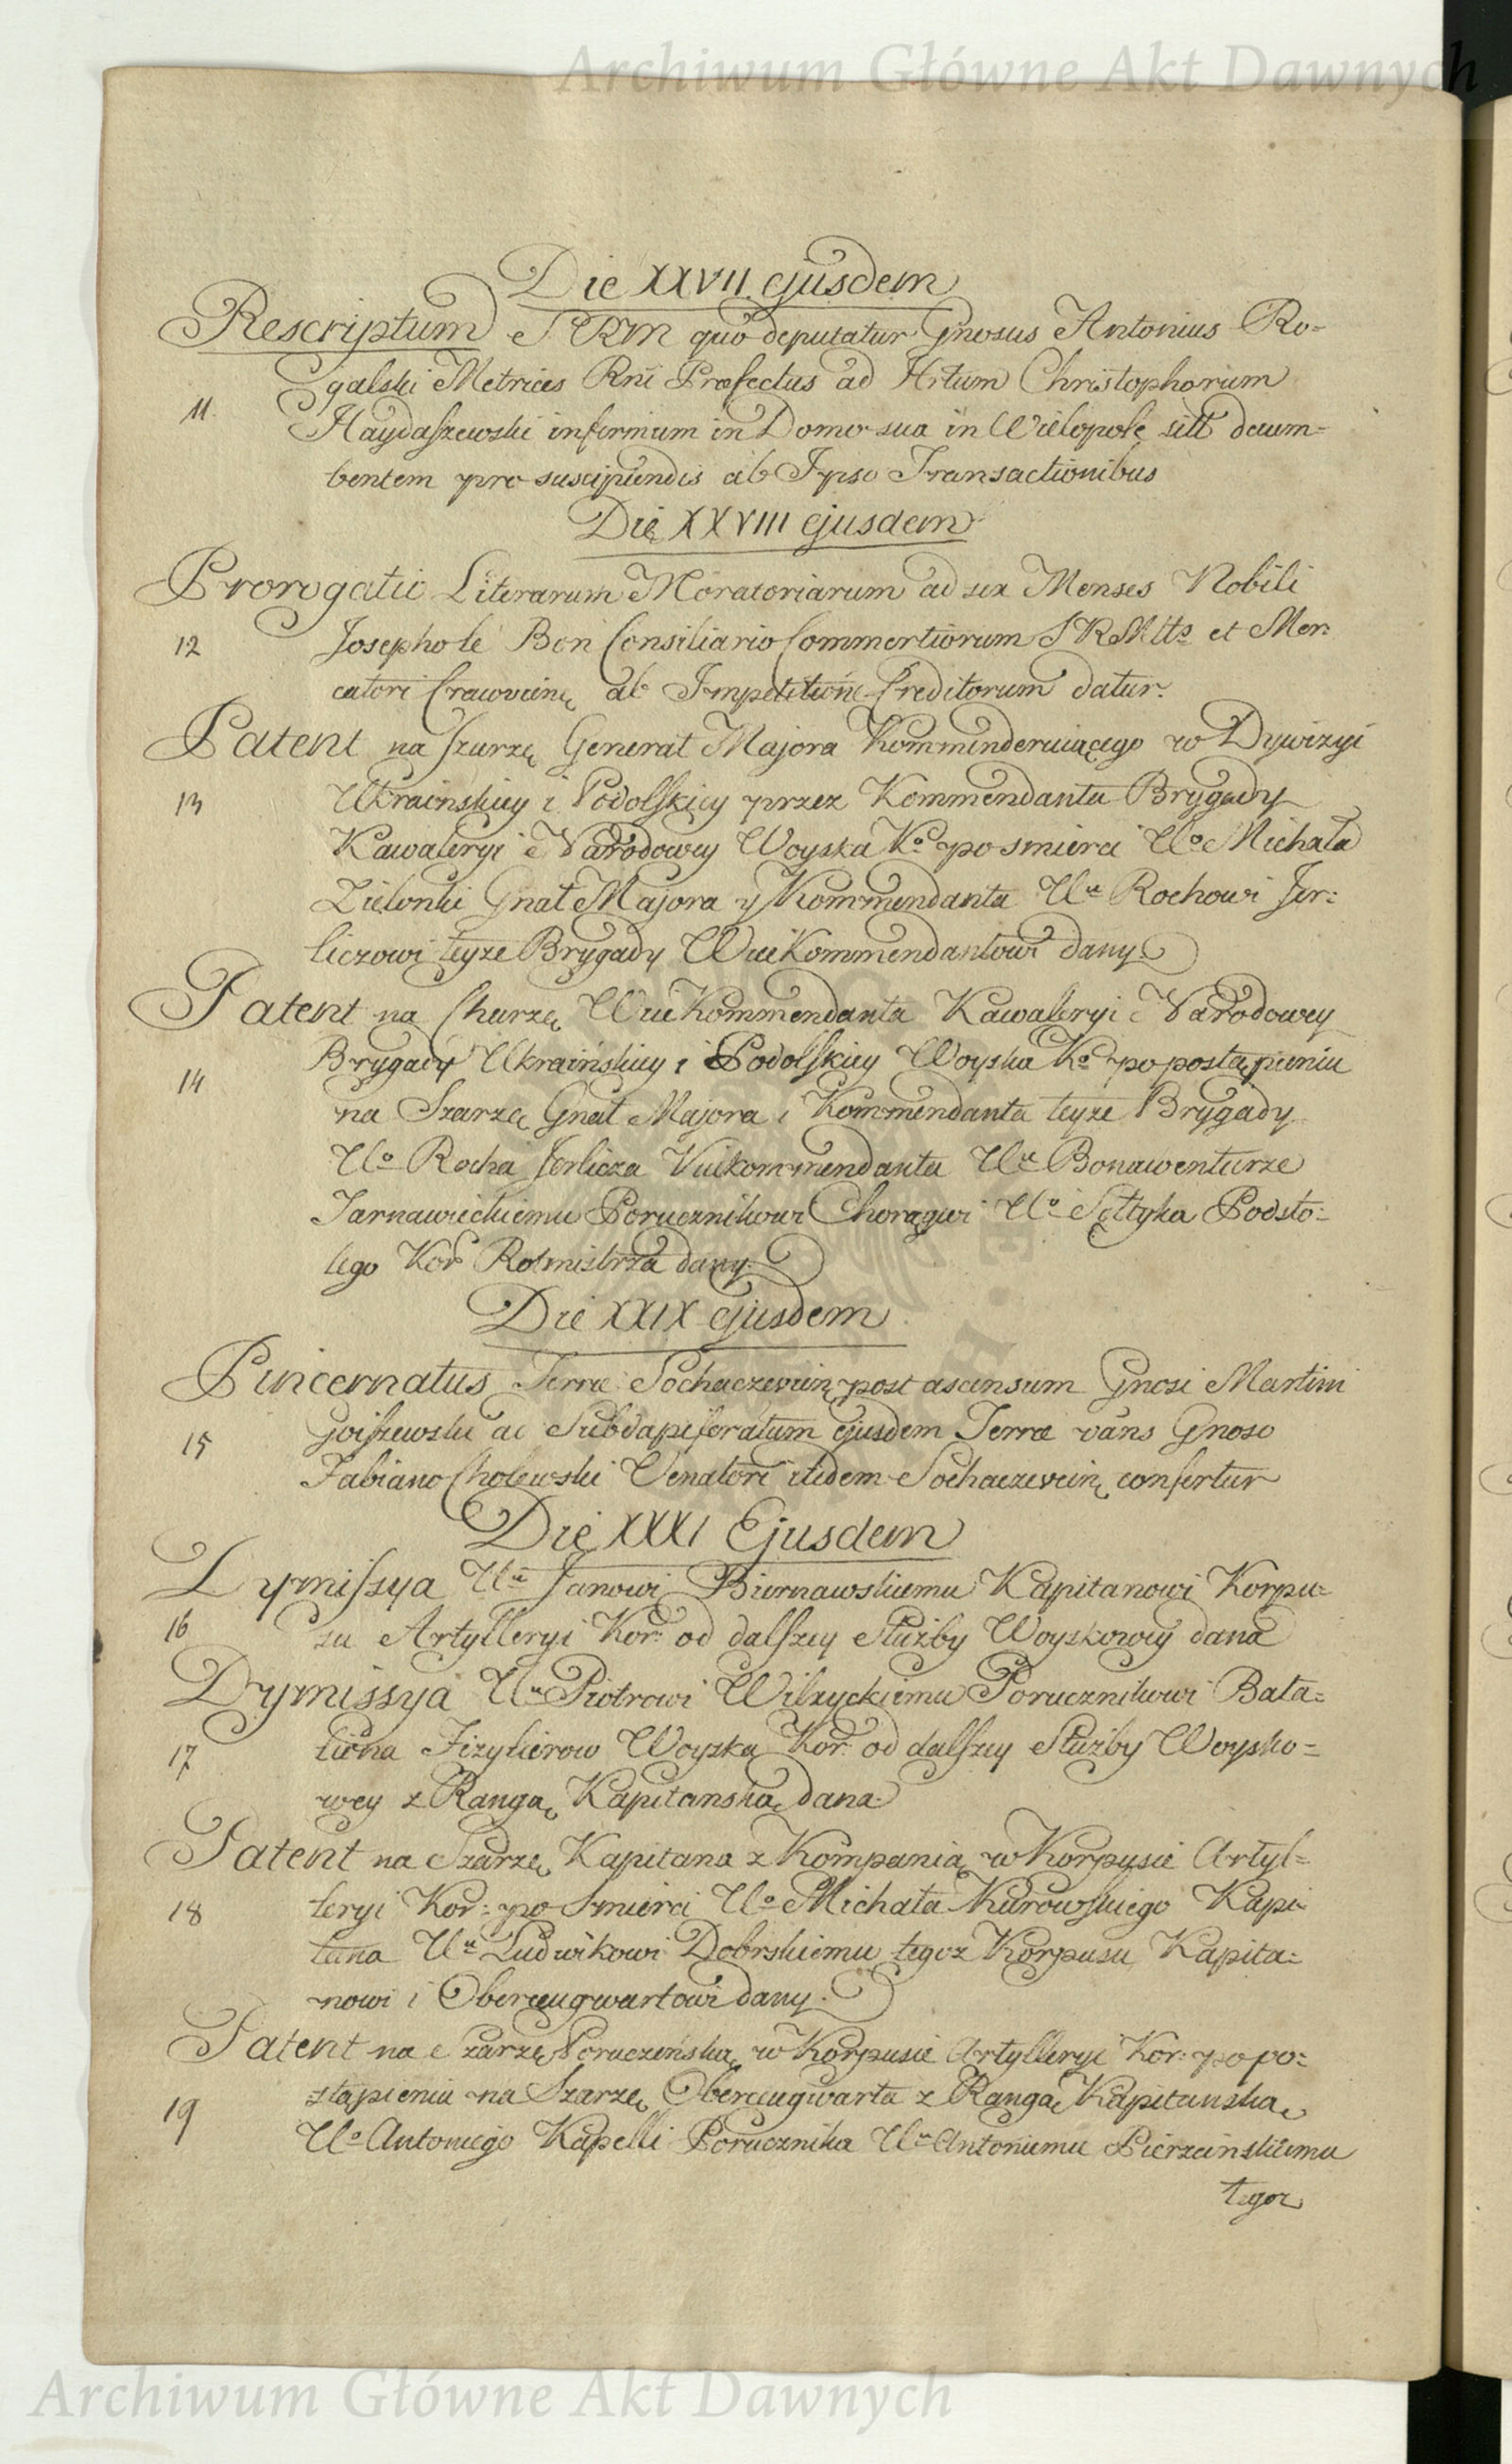 Archiwum Główne Akt Dawnych
Die XXVII ejusdem
Rescriptum S RM quo deputatur Gnosus Antonius Ro=
galski Metrices Rni Præfectus ad Hrtum Christophorum
11.
Haydaszewski infirmum in Domo sua in Wielopole sitt decum=
bentem pro suscipiendis ab Ipso Transactionibus
Die XXVIII ejusdem
Prorogatio Literarum Moratoriarum ad sex Menses Nobili
12
Josepho le Bon Consiliario Commertiorum S R Mttis et Mer=
catori Cracovienę ab Impetitione Creditorum datur.
Patent na szarzę Generał Majora Kommenderuiącego w Dywizyi
13
Ukrainskiey i Podolskiey przez Kommendanta Brygady
Kawaleryi Narodowey Woyska Ko po smierci Uo Michała
Zielonki Gnał Majora y Kommendanta Uu Rochowi Jer=
liczowi teyze Brygady WiceKommendantowi dany
Patent na Charzę WiceKommendanta Kawaleryi Narodowey
Brygady Ukraińskiey i Podolskiey Woyska Ko po postąpieniu
14
na Szarzę Gnał Majora i Kommendanta teyze Brygady
Uo Rocha Jerlicza Vicekommendanta Uu Bonawenturze
Jarnawieckiemu Porucznikowi Chorągwi Uo Sołtyka Podsto=
lego Kor Rotmistrza dany.
Die XXIX ejusdem
Pincernatus Terræ Sochaczevienę post ascensum Gnosi Martini
15
Goiszewski ad Subdapiferatum ejusdem Terræ vans Gnoso
Fabiano Cholewski Venatori itidem Sochaczevienę confertur
Die XXXI Ejusdem
Dymissya Uu Janowi Biernawskiemu Kapitanowi Korpu=
16
su Artylleryi Kor: od dalszey Służby Woyskowey dana
Dymissya Uu Piotrowi Wilzyckiemu Porucznikowi Bata=
17
liona Fizylierow Woyska Kor: od dalszey Służby Woysko=
wey z Rangą Kapitanską dana
Patent na Szarzę Kapitana z Kompanią w Korpusie Artyl=
18
leryi Kor: po Smierci Uo Michała Kurowskiego Kapi=
tana Uu Ludwikowi Dobrskiemu tegoz Korpusu Kapita=
nowi i Oberceugwartowi dany.
Patent na Szarzę Poruczeńską w Korpusie Artylleryi Kor: po po=
19
stąpieniu na Szarzę Oberceugwarta z Rangą Kapitanską
Uo Antoniego Kapelli Porucznika Uu Antoniemu Pierzcinskiemu
tegoz
Archiwum Główne Akt Dawnych